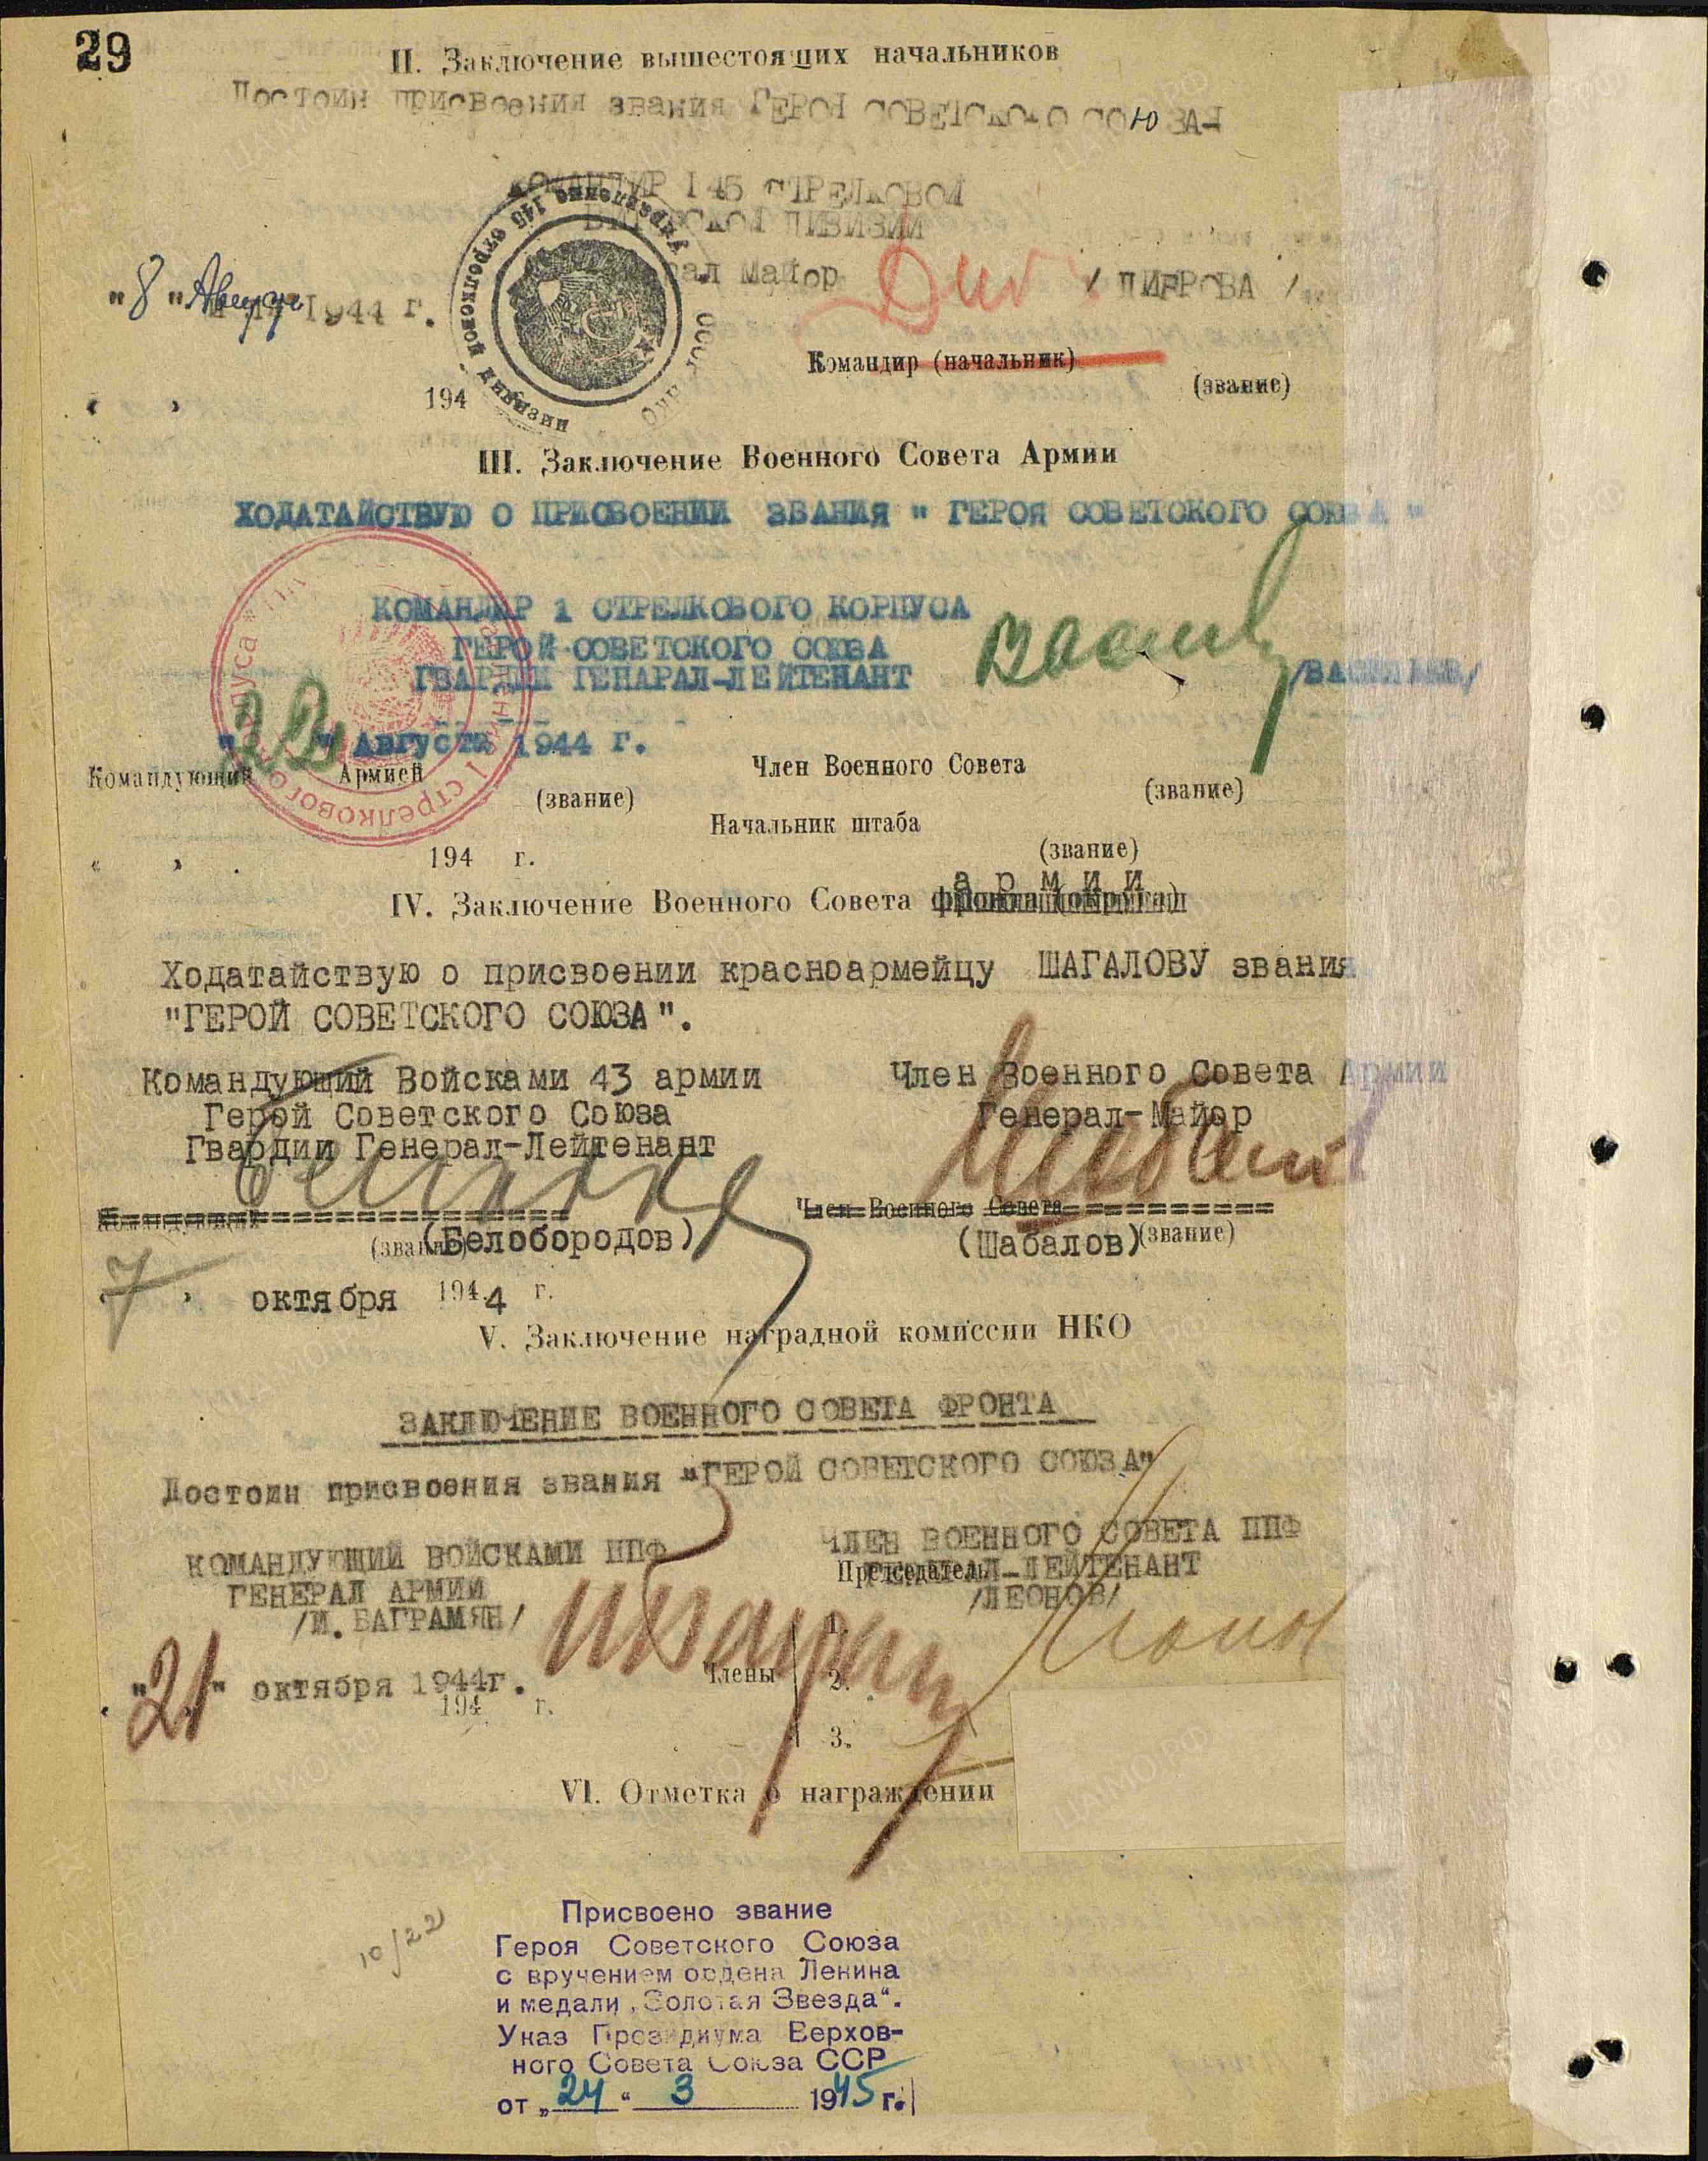 29
II. Заключение вышестоящих начальников
Достоин присвоения звания ГЕРОЯ СОВЕТСКОГО СОЮЗА
КОМАНДИР 145 СТРЕЛКОВОЙ
ДИВИЗИИ
Майор / ДИБРОВА /
"8" Август 1944 г.
Командир (начальник)
(звание)
" " 194 г.
III. Заключение Военного Совета Армии
ХОДАТАЙСТВУЮ О ПРИСВОЕНИИ ЗВАНИЯ " ГЕРОЯ СОВЕТСКОГО СОЮЗА "
КОМАНДИР 1 СТРЕЛКОВОГО КОРПУСА
ГЕРОЙ СОВЕТСКОГО СОЮЗА
ГВАРДИИ ГЕНАРАЛ-ЛЕЙТЕНАНТ
/ВАСИЛЬЕВ/
"22" Августа 1944 г.
Командующий Армией
(звание)
Член Военного Совета
(звание)
Начальник штаба
(звание)
" " 194 г.
армии
IV. Заключение Военного Совета фронта (округа)
Ходатайствую о присвоении красноармейцу ШАГАЛОВУ звания
"ГЕРОЙ СОВЕТСКОГО СОЮЗА".
Командующий Войсками 43 армии
Герой Советского Союза
Гвардии Генерал-Лейтенант
Член Военного Совета Армии
Генерал-Майор
Командующий
(звание)
(Белобородов)
Член Военного Совета
(Шабалов)
(звание)
"7" октября 1944 г.
V. Заключение наградной комиссии НКО
ЗАКЛЮЧЕНИЕ ВОЕННОГО СОВЕТА ФРОНТА
Достоин присвоения звания "ГЕРОЙ СОВЕТСКОГО СОЮЗА"
КОМАНДУЮЩИЙ ВОЙСКАМИ ППФ
ГЕНЕРАЛ АРМИИ
/И. БАГРАМЯН/
ЧЛЕН ВОЕННОГО СОВЕТА ППФ
ГЕНЕРАЛ-ЛЕЙТЕНАНТ
Председатель
/ЛЕОНОВ/
"21" октября 1944г.
194 г.
Члены
1.
2.
3.
VI. Отметка о награждении
10/22
Присвоено звание
Героя Советского Союза
с вручением ордена Ленина
и медали „Золотая Звезда“.
Указ Президиума Верхов-
ного Совета Союза ССР
от „24“ 3 1945 г.